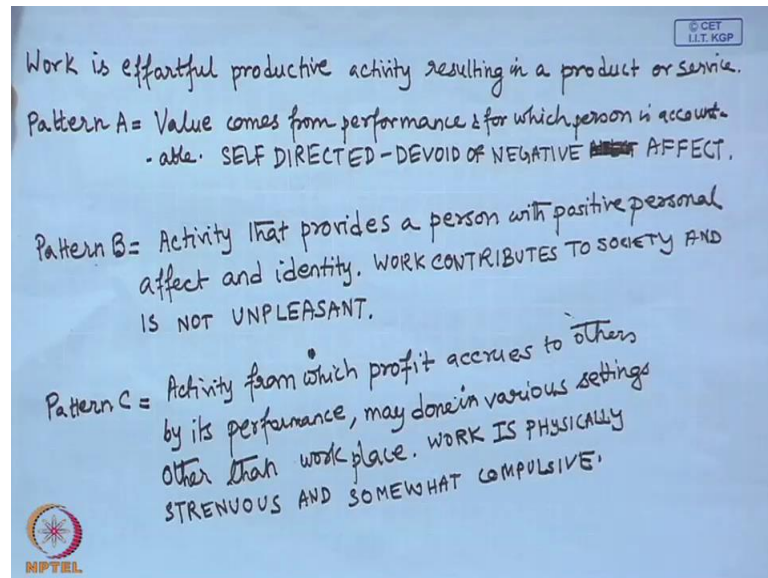 © CET
I.I.T. KGP
Work is effortful productive activity resulting in a product or service.
Pattern A = Value comes from performance & for which person is account-
-able. SELF DIRECTED - DEVOID OF NEGATIVE AFFECT.
Pattern B = Activity that provides a person with positive personal
affect and identity. WORK CONTRIBUTES TO SOCIETY AND
IS NOT UNPLEASANT.
Pattern C = Activity from which profit accrues to others
by its performance, may done in various settings
other than work place. WORK IS PHYSICALLY
STRENUOUS AND SOMEWHAT COMPULSIVE.
NPTEL